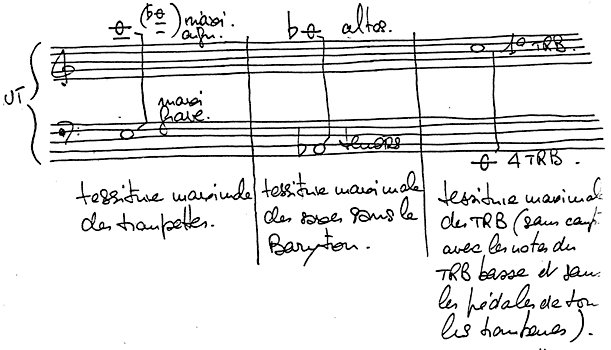 maxi
aigu.
altos.
1º TRB.
UT
maxi
grave.
tenors
4 TRB.
tessiture maximale
des trompettes.
tessiture maximale
des saxes sans le
Baryton.
tessiture maximale
des TRB (sans
avec les notes du
TRB basse et sans
les pédales de tous
les trombones).